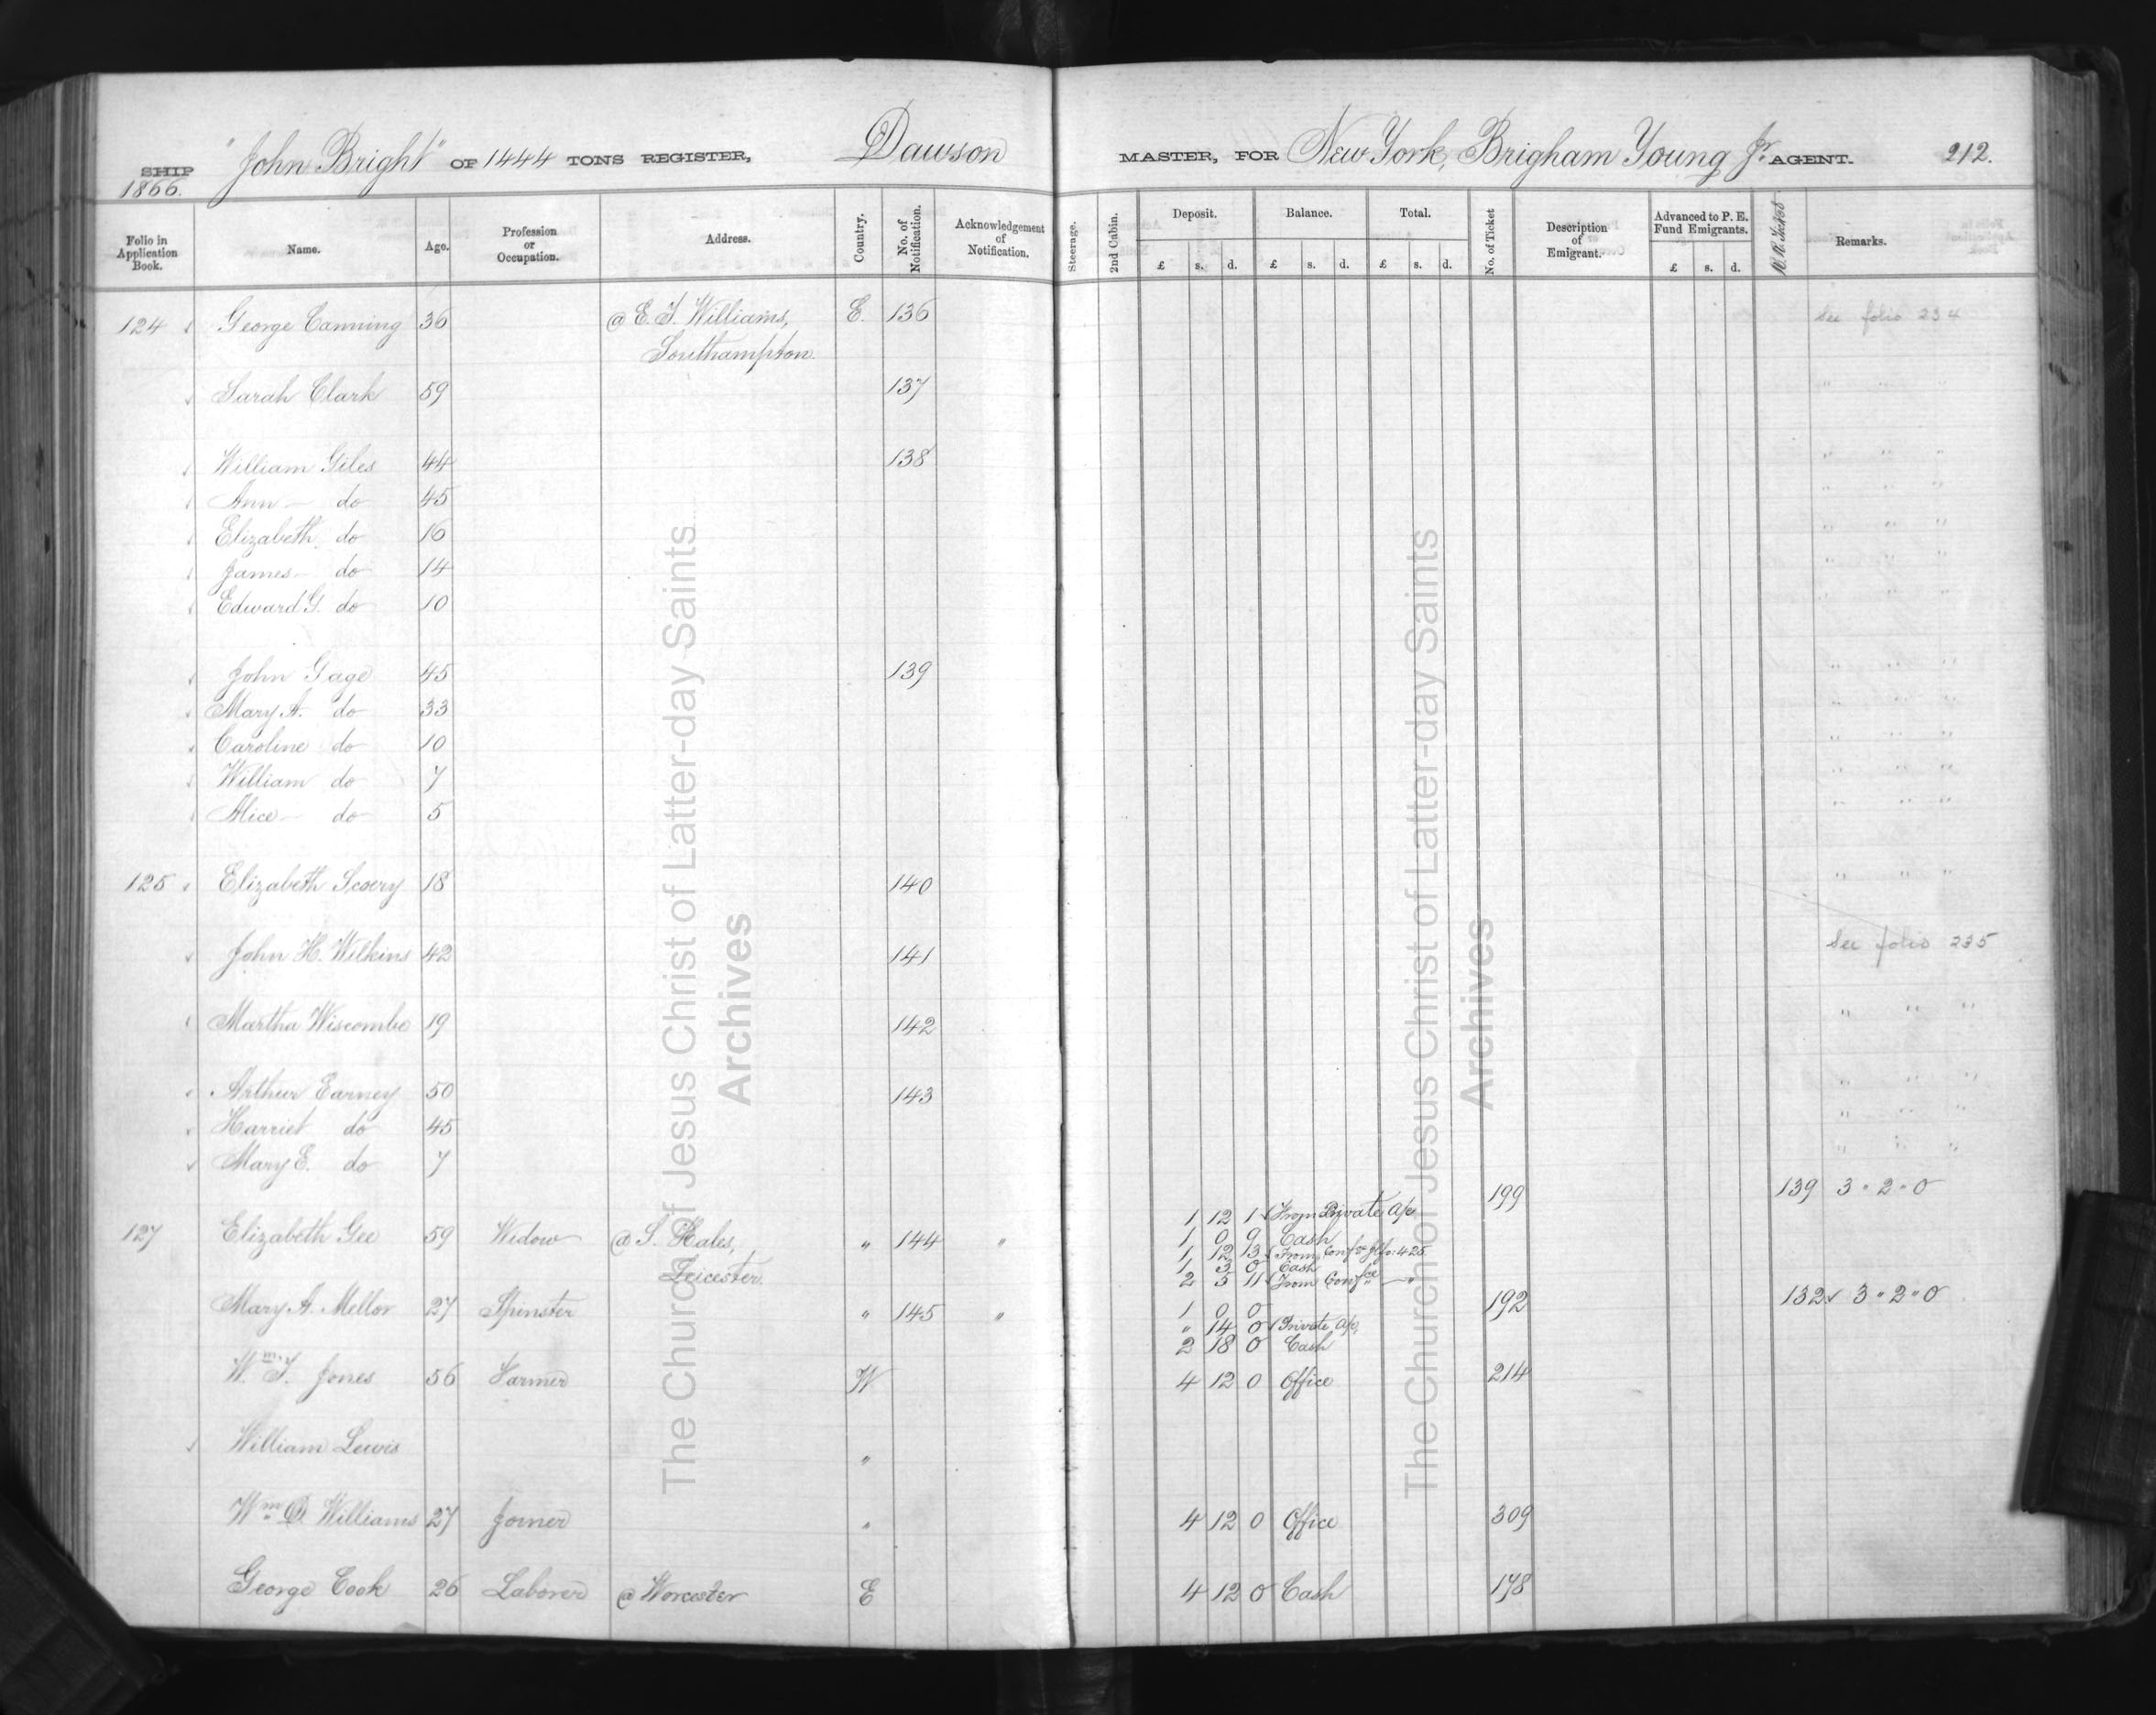 SHIP "John Bright" OF 1444 TONS REGISTER, Dawson MASTER, FOR New York, Brigham Young Jr. AGENT. 212.
1866.
Folio in Application Book. Name. Age. Profession or Occupation. Address. Country. No. of Notification. Acknowledgement of Notification. Steerage. 2nd Cabin. Deposit. Balance. Total. No. of Ticket Description of Emigrant. Advanced to P. E. Fund Emigrants. Remarks.
£ s. d. £ s. d. £ s. d. £ s. d.
124 George Canning 36 @ E. T. Williams, E. 136 See folio 234
Southampton.
Sarah Clark 59 137 " " "
William Giles 44 138 " " "
Ann — do 45 " " "
Elizabeth do 16 " " "
James — do 14 " " "
Edward G. do 10 " " "
John Gage 45 139 " " "
Mary A. do 33 " " "
Caroline do 10 " " "
William do 7 " " "
Alice — do 5 " " "
125 Elizabeth Scoery 18 140 " " "
John H. Wilkins 42 141 See folio 235
Martha Wiscombe 19 142 " " "
Arthur Earney 50 143 " " "
Harriet do 45 " " "
Mary E. do 7 " " "
199 139 3 " 2 " 0
1 12 1 From Private a/c
127 Elizabeth Gee 59 Widow @ S. Hales, " 144 " 1 0 0 Cash
1 12 13 From Conf
1 3 0 Cash
Leicester. 2 5 11 From Confce — "
Mary A. Mellor 27 Spinster " 145 " 1 0 0 192 132 3 " 2 " 0
" 14 0 Private a/c,
2 18 0 Cash
Wm. T. Jones 56 Farmer W 4 12 0 Office 214
William Lewis "
Wm. D. Williams 27 Joiner " 4 12 0 Office 309
George Cook 26 Laborer @ Worcester E 4 12 0 Cash 178
The Church of Jesus Christ of Latter-day Saints
Archives
The Church of Jesus Christ of Latter-day Saints
Archives